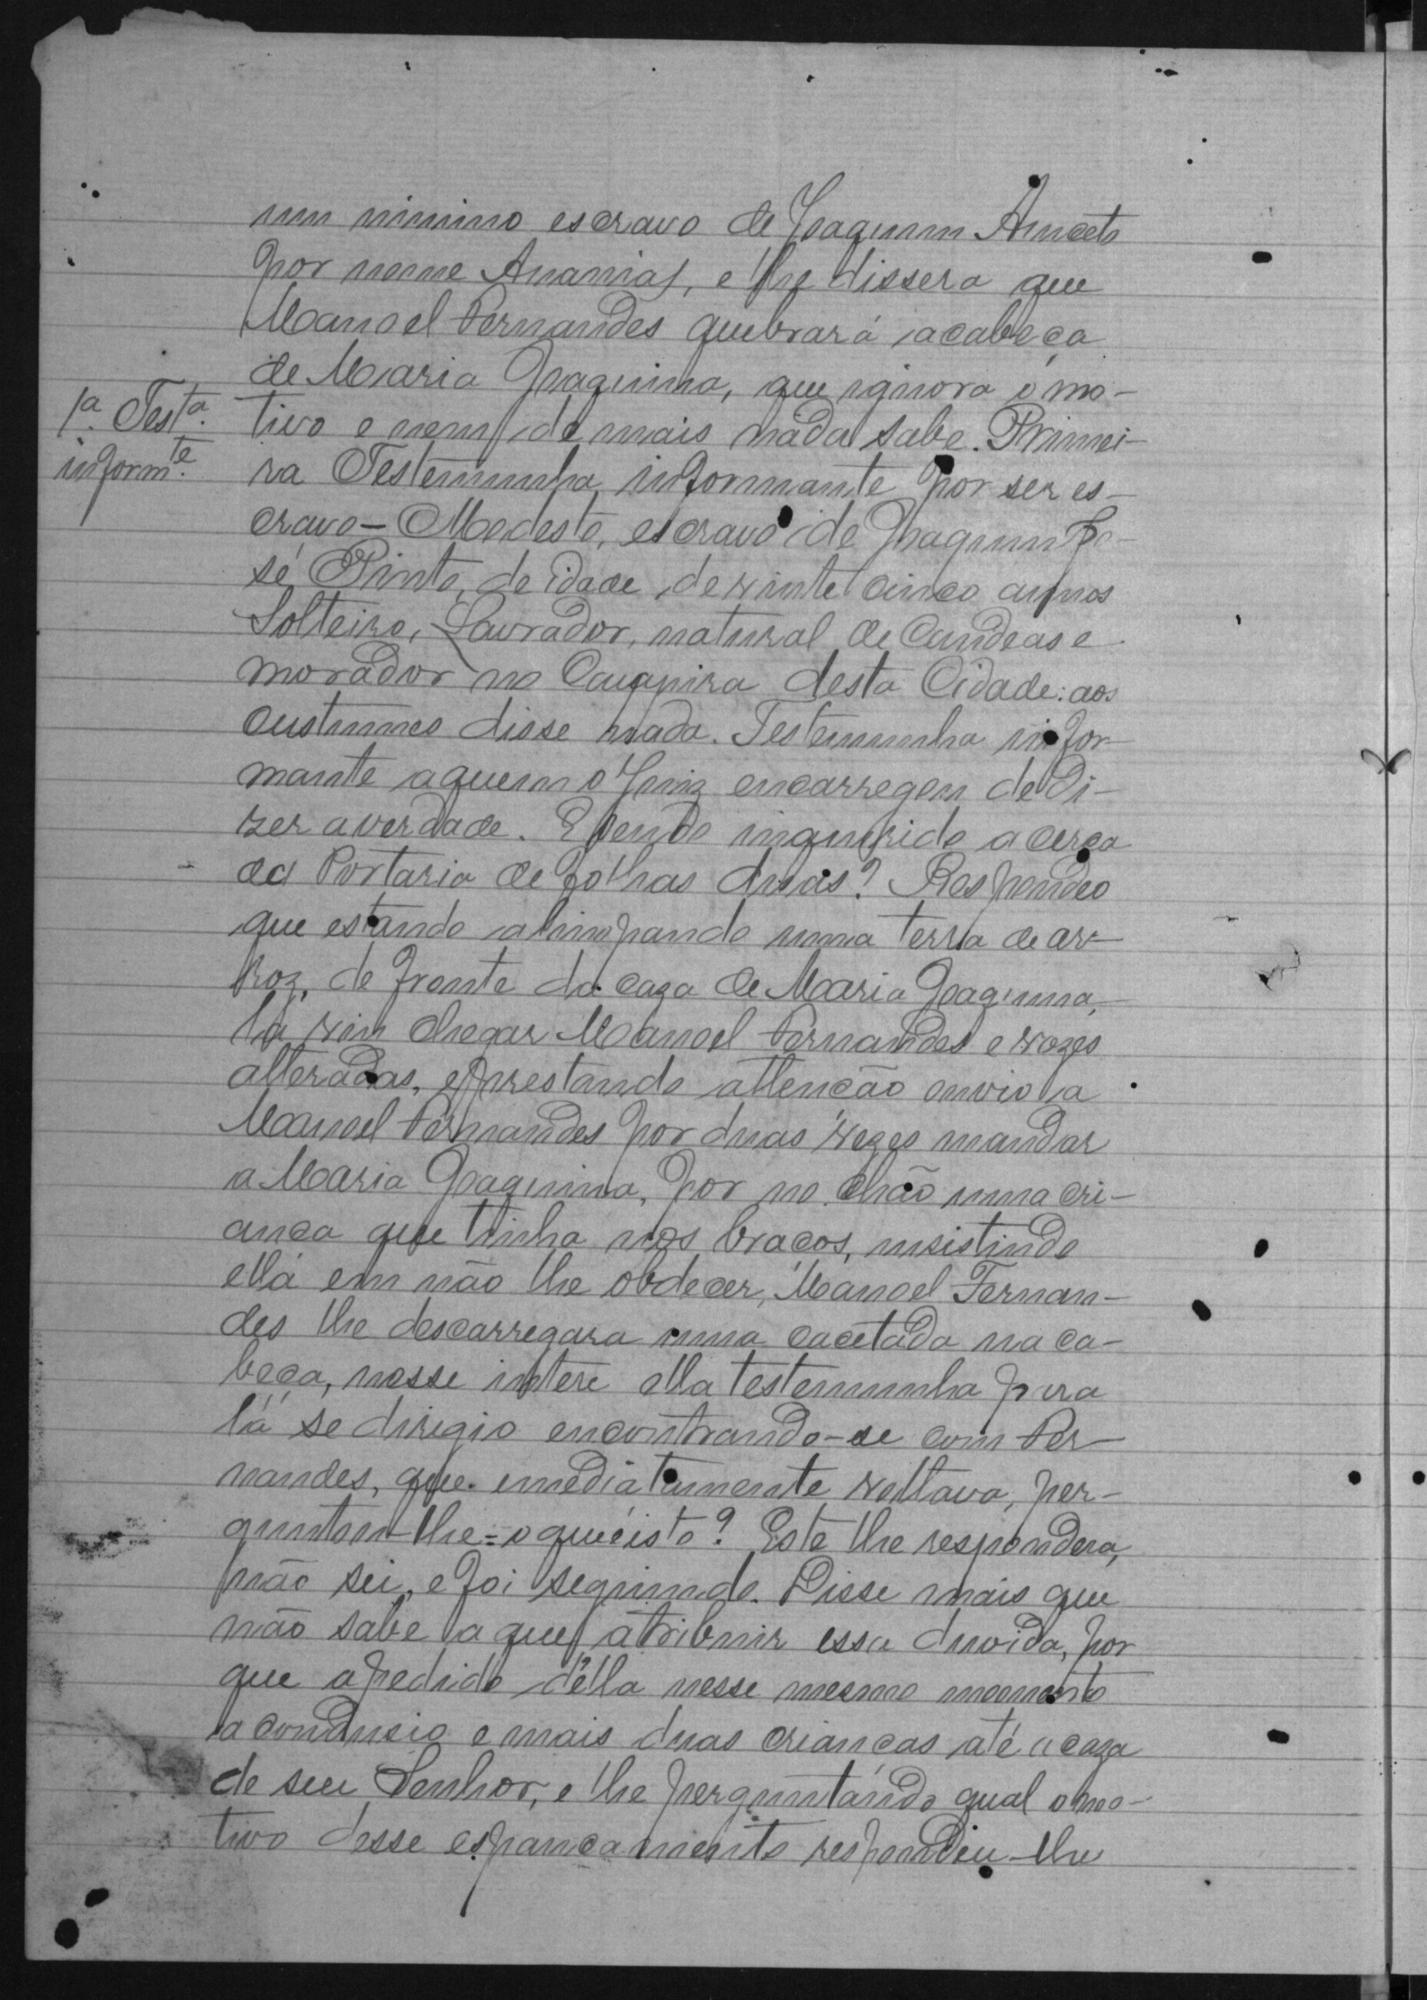 um minino escravo de Joaquim Anuceto
por nome Ananias, e lhe dissera que
Manoel Fernandes quebrará acabeça
de Maria Joaquina, que ignora o mo-
1ª. Testª. tivo e nem de mais nada sabe. Primei-
informte. ra Testemunha informante por ser es-
cravo - Modesto, escravo de Joaquim Jo-
sé Pinto, de idade de vinte cinco annos
Solteiro, Lavrador, natural de Candeas e
morador no desta Cidade: aos
custumes disse nada. Testemunha infor-
mante aquem o Juiz encarregou de di-
zer averdade. E sendo inquirido acerca
da Portaria de folhas duas? Respondeo
que estando alimpando uma terra de ar-
roz, de fronte da caza de Maria Joaquina,
la vio chegar Manoel Fernandes e vozes
alteradas, e prestando attenção ouvio a
Manoel Fernandes por duas vezes mandar
a Maria Joaquina, por no chão uma cri-
ança que tinha nos braços, insistindo
ella em não lhe obdecer, Manoel Fernan-
des lhe descarregara uma cacetada na ca-
beça, nesse intere ella testemunha para
lá se dirigio encontrando-se com Fer-
nandes, que emediatamente voltava, per-
guntou-lhe = oqueéisto? Este lhe respondera,
não sei, e foi seguindo. Disse mais que
não sabe a que atribuir essa duvida, por
que apedido d'ella nesse mesmo momento
a condusio e mais duas crianças até a caza
de seu Senhor, e lhe perguntando qual o mo-
tivo desse espancamento respondeu-lhe